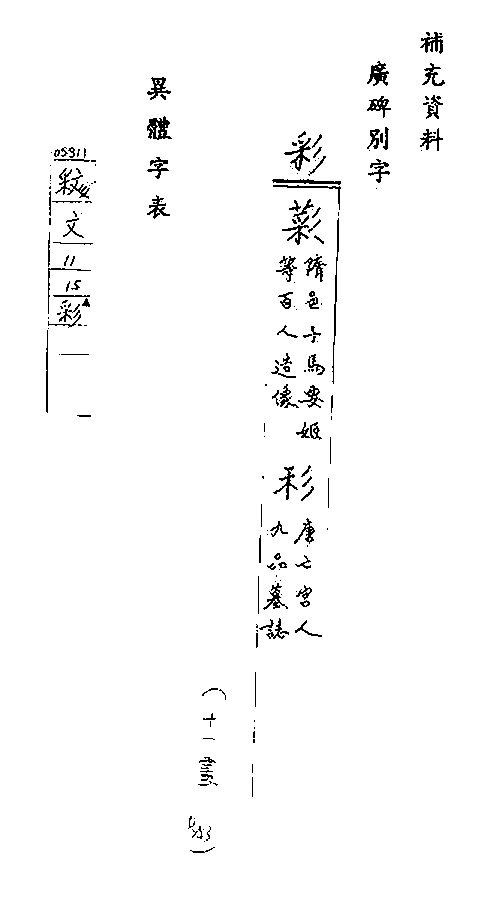 補充資料
廣碑別字
彩
䔢
隋邑子馬要姬
等百人造像
彩
唐亡宮人
九品墓誌
(十一畫
異體字表
05311
文
11
15
彩